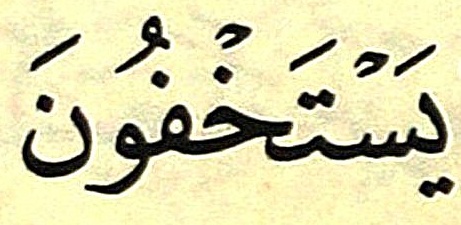 يَسْتَخْفُونَ